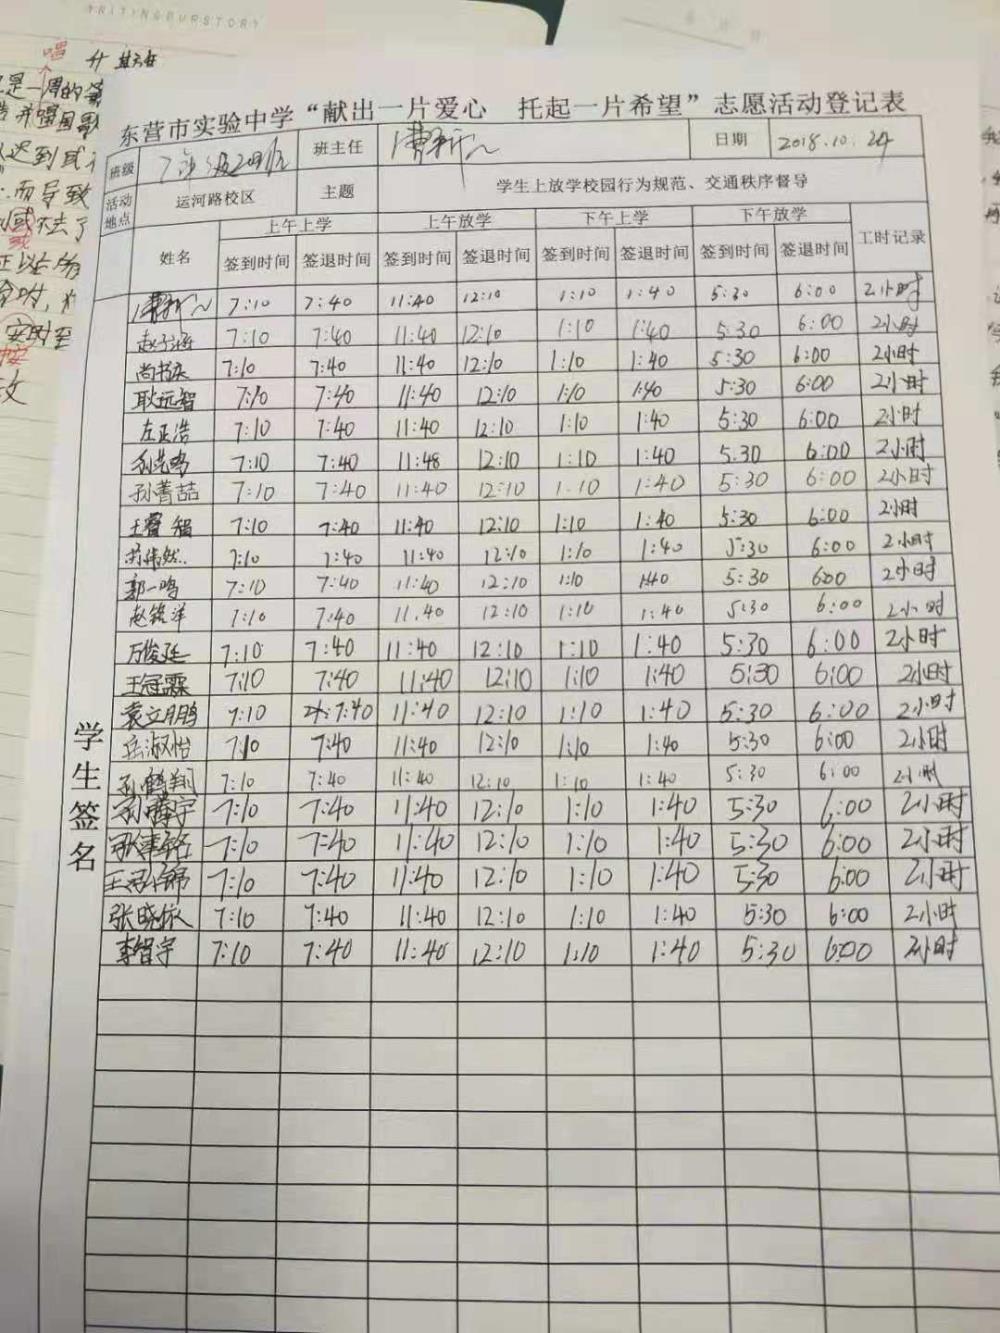 WRITINGBURSTORY
唱
是一周的
并唱国歌
迟到或
而导致
或不去了
正以后
实时至
东营市实验中学“献出一片爱心 托起一片希望”志愿活动登记表
班级 班主任 日期 2018.10.24
活动地点 运河路校区 主题 学生上放学校园行为规范、交通秩序督导
姓名 上午上学 上午放学 下午上学 下午放学 工时记录
签到时间 签退时间 签到时间 签退时间 签到时间 签退时间 签到时间 签退时间
学生签名
7:10 7:40 11:40 12:10 1:10 1:40 5:30 6:00 2小时
赵子涵 7:10 7:40 11:40 12:10 1:10 1:40 5:30 6:00 2小时
尚书庆 7:10 7:40 11:40 12:10 1:10 1:40 5:30 6:00 2小时
耿远智 7:10 7:40 11:40 12:10 1:10 1:40 5:30 6:00 2小时
左正浩 7:10 7:40 11:40 12:10 1:10 1:40 5:30 6:00 2小时
7:10 7:40 11:48 12:10 1:10 1:40 5:30 6:00 2小时
孙菁喆 7:10 7:40 11:40 12:10 1:10 1:40 5:30 6:00 2小时
王睿智 7:10 7:40 11:40 12:10 1:10 1:40 5:30 6:00 2小时
7:10 7:40 11:40 12:10 1:10 1:40 5:30 6:00 2小时
郭一鸣 7:10 7:40 11:40 12:10 1:10 1:40 5:30 6:00 2小时
7:10 7:40 11:40 12:10 1:10 1:40 5:30 6:00 2小时
万俊廷 7:10 7:40 11:40 12:10 1:10 1:40 5:30 6:00 2小时
王冠霖 7:10 7:40 11:40 12:10 1:10 1:40 5:30 6:00 2小时
袁立鹏 7:10 7:40 11:40 12:10 1:10 1:40 5:30 6:00 2小时
岳淑怡 7:10 7:40 11:40 12:10 1:10 1:40 5:30 6:00 2小时
孙鹤翔 7:10 7:40 11:40 12:10 1:10 1:40 5:30 6:00 2小时
7:10 7:40 11:40 12:10 1:10 1:40 5:30 6:00 2小时
7:10 7:40 11:40 12:10 1:10 1:40 5:30 6:00 2小时
7:10 7:40 11:40 12:10 1:10 1:40 5:30 6:00 2小时
张晓依 7:10 7:40 11:40 12:10 1:10 1:40 5:30 6:00 2小时
李智宇 7:10 7:40 11:40 12:10 1:10 1:40 5:30 6:00 2小时